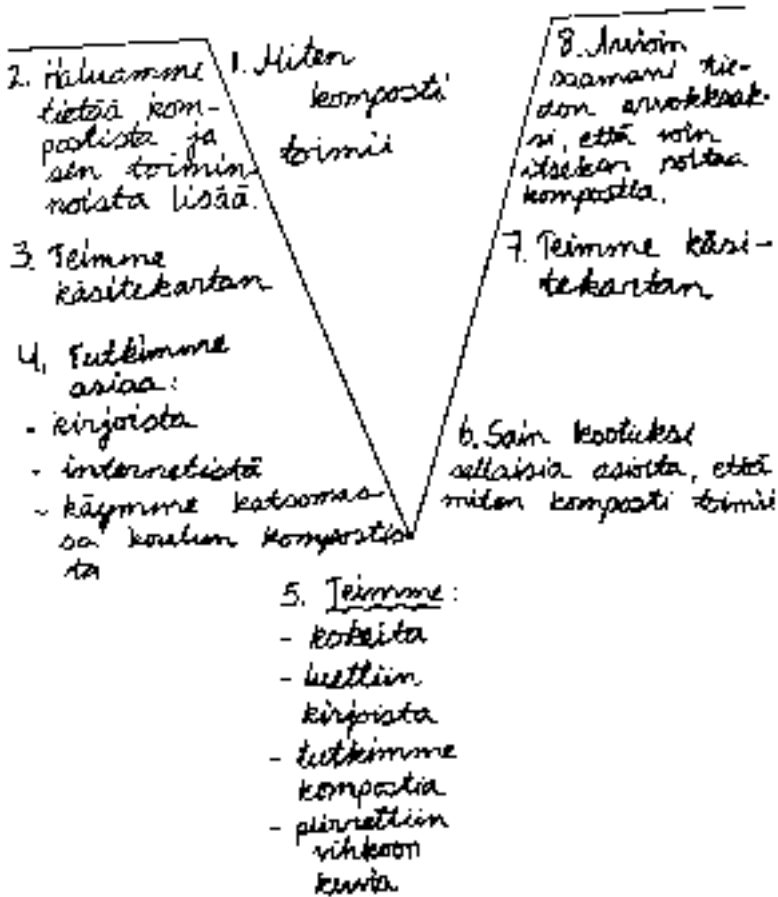 1. Miten
komposti
toimii
2. Haluamme
tietää kom-
postista ja
sen toimin-
noista lisää.
3. Teimme
käsitekartan
4. Tutkimme
asiaa:
- kirjoista
- internetistä
- käymme katsomas
sa koulun kompostis
ta
5. Teimme:
- kokeita
- luettiin
kirjoista
- tutkimme
kompostia
- piirrettiin
vihkoon
kuvia
6. Sain kootuksi
sellaisia asioita, että
miten komposti toimii
7. Teimme käsi-
tekartan
8. Arvioin
saamani tie-
don arvokkaak-
si, että voin
itsekin hoitaa
kompostia.